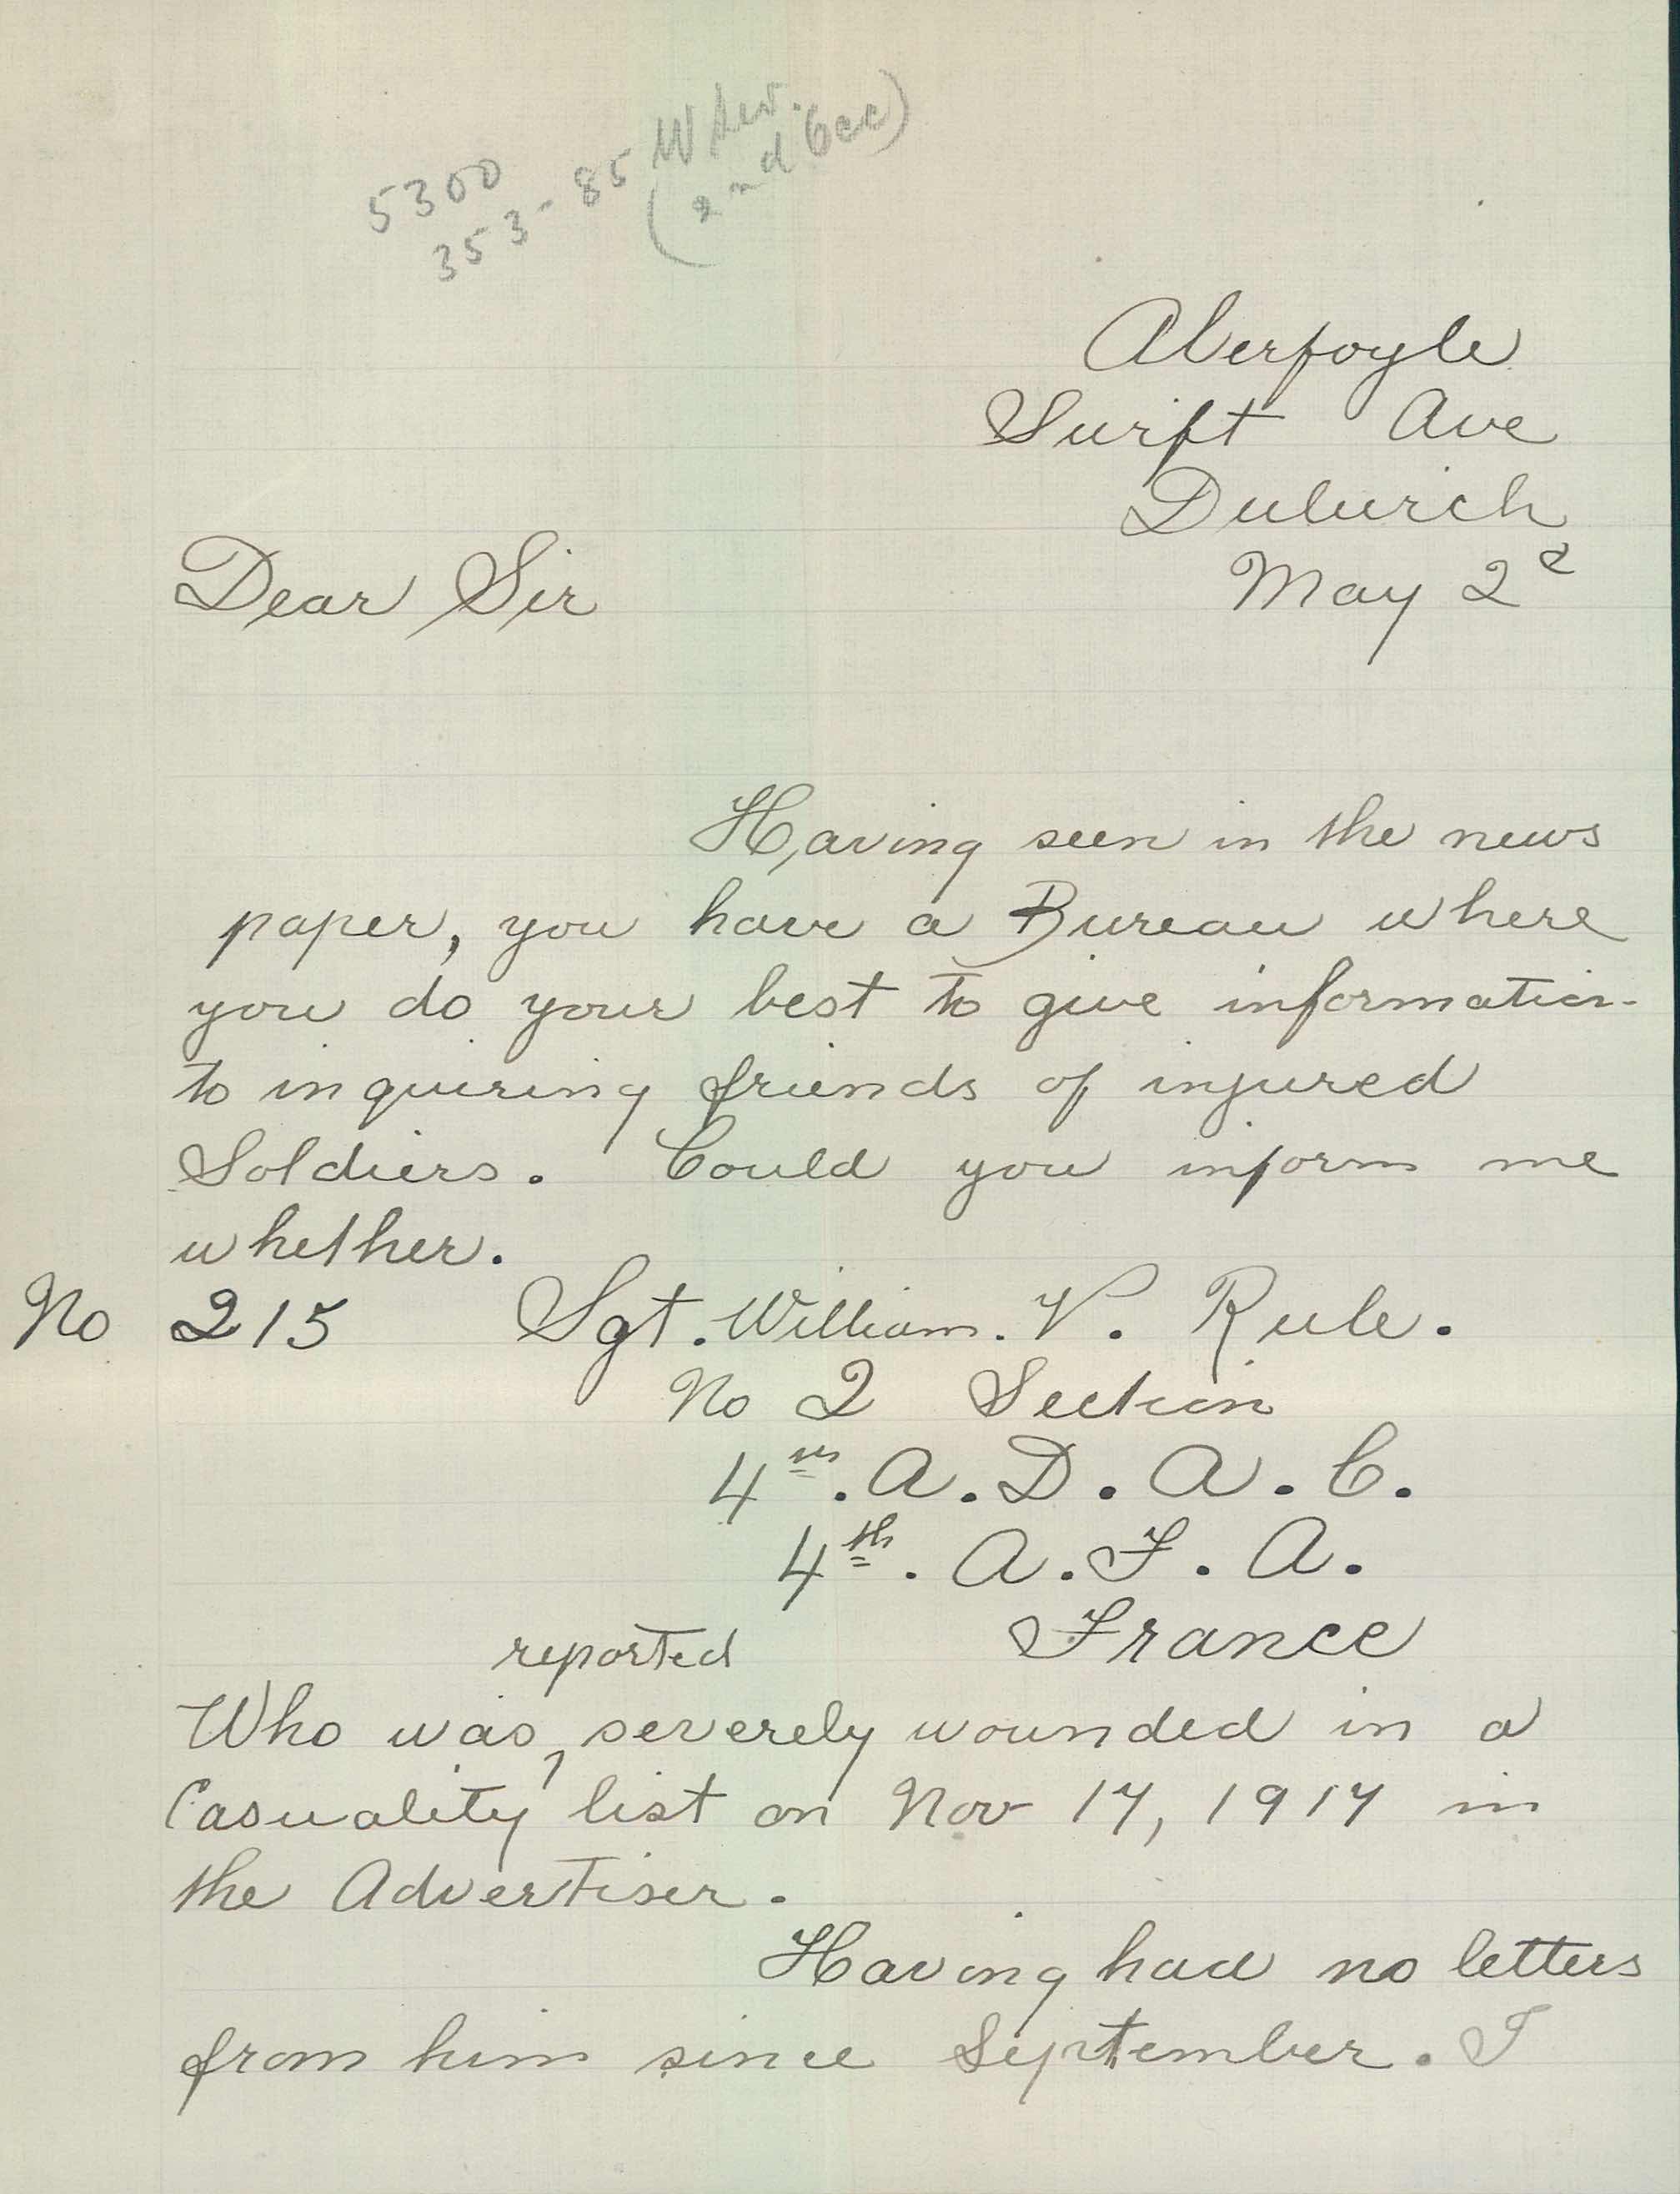 5300
353-85
(2nd
Aberfoyle
Swift Ave
Dulwich
May 2d
Dear Sir
Having seen in the news
paper, you have a Bureau where
you do your best to give information
to inquiring friends of injured
Soldiers. Could you inform me
whether.
No 215 Sgt. William. V. Rule.
No 2 Section
4th. A. D. A. C.
4th. A. F. A.
France
reported
Who was, severely wounded in a
Casuality list on Nov 17, 1917 in
the Advertiser.
Having had no letters
from him since September. I